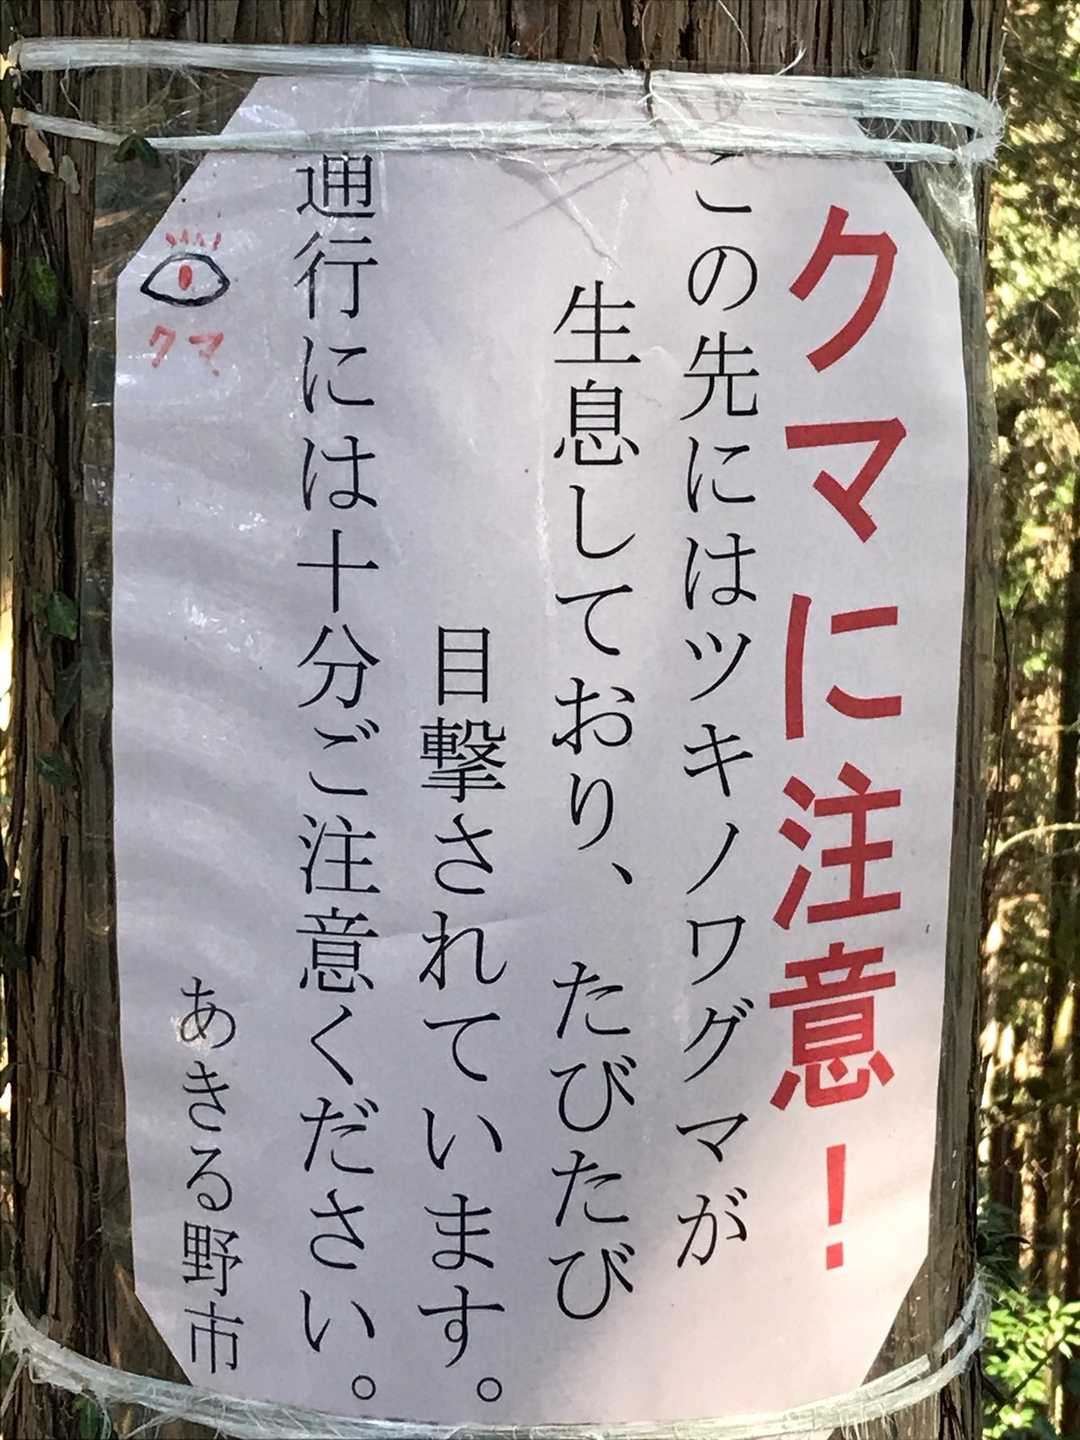 クマに注意！
この先にはツキノワグマが
生息しており、たびたび
目撃されています。
通行には十分ご注意ください。
あきる野市
クマ